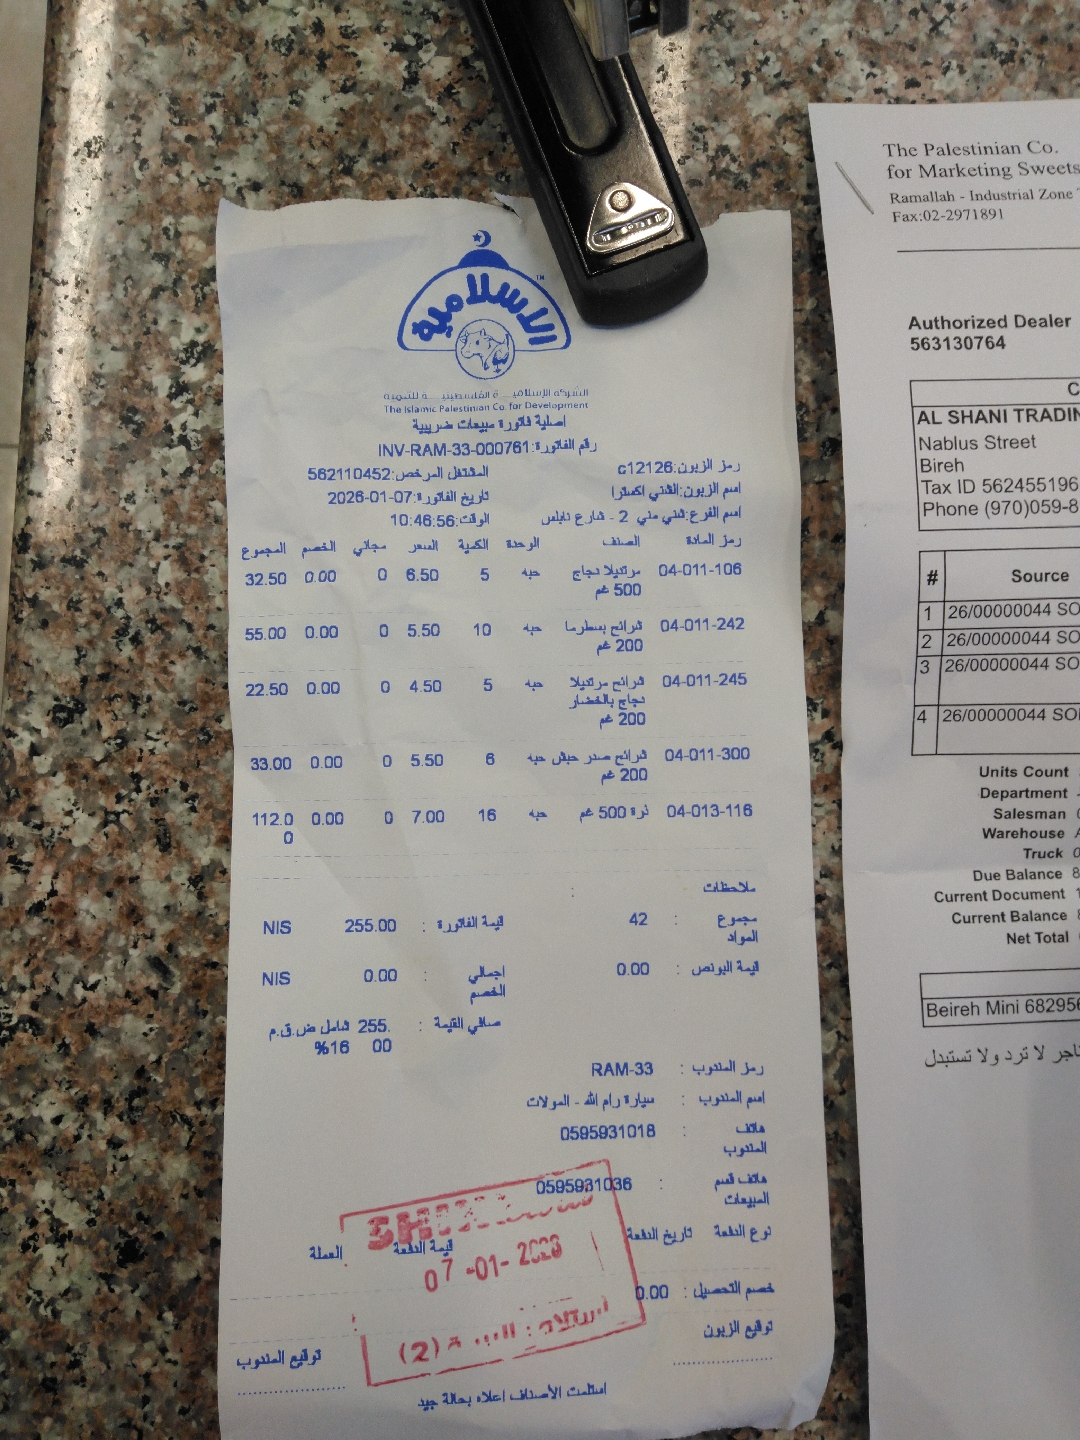 الاسلامية
TM
الشركة الإسلامية الفلسطينية للتنمية
The Islamic Palestinian Co. for Development
اصلية فاتورة مبيعات ضريبية
رقم الفاتورة:INV-RAM-33-000761
رمز الزبون:c12126 المشتغل المرخص:562110452
اسم الزبون:الشني اكسترا تاريخ الفاتورة:2026-01-07
اسم الفرع:شني مني 2 - شارع نابلس الوقت:10:46:56
رمز المادة الصنف الوحدة الكمية السعر مجاني الخصم المجموع
04-011-106 مرتديلا دجاج حبه 5 6.50 0 0.00 32.50
500 غم
04-011-242 شرائح بسطرما حبه 10 5.50 0 0.00 55.00
200 غم
04-011-245 شرائح مرتديلا حبه 5 4.50 0 0.00 22.50
دجاج بالخضار
200 غم
04-011-300 شرائح صدر حبش حبه 6 5.50 0 0.00 33.00
200 غم
04-013-116 ذرة 500 غم حبه 16 7.00 0 0.00 112.0
0
ملاحظات :
مجموع : 42 قيمة الفاتورة : 255.00 NIS
المواد
قيمة البونص : 0.00 اجمالي : 0.00 NIS
الخصم
صافي القيمة : 255. شامل ض.ق.م
00 16%
رمز المندوب : RAM-33
اسم المندوب : سيارة رام الله - المولات
هاتف : 0595931018
المندوب
هاتف قسم : 0595931036
المبيعات
نوع الدفعة تاريخ الدفعة قيمة الدفعة العملة
07-01-2026
خصم التحصيل : 0.00
(2)
توقيع الزبون توقيع المندوب
استلمت الأصناف اعلاه بحالة جيد
The Palestinian Co.
for Marketing Sweets
Ramallah - Industrial Zone
Fax:02-2971891
Authorized Dealer
563130764
C
AL SHANI TRADIN
Nablus Street
Bireh
Tax ID 562455196
Phone (970)059-8
# Source
1 26/00000044 SO
2 26/00000044 SO
3 26/00000044 SO
4 26/00000044 SO
Units Count
Department
Salesman
Warehouse
Truck
Due Balance 8
Current Document 1
Current Balance 8
Net Total
Beireh Mini 682956
تاجر لا ترد ولا تستبدل